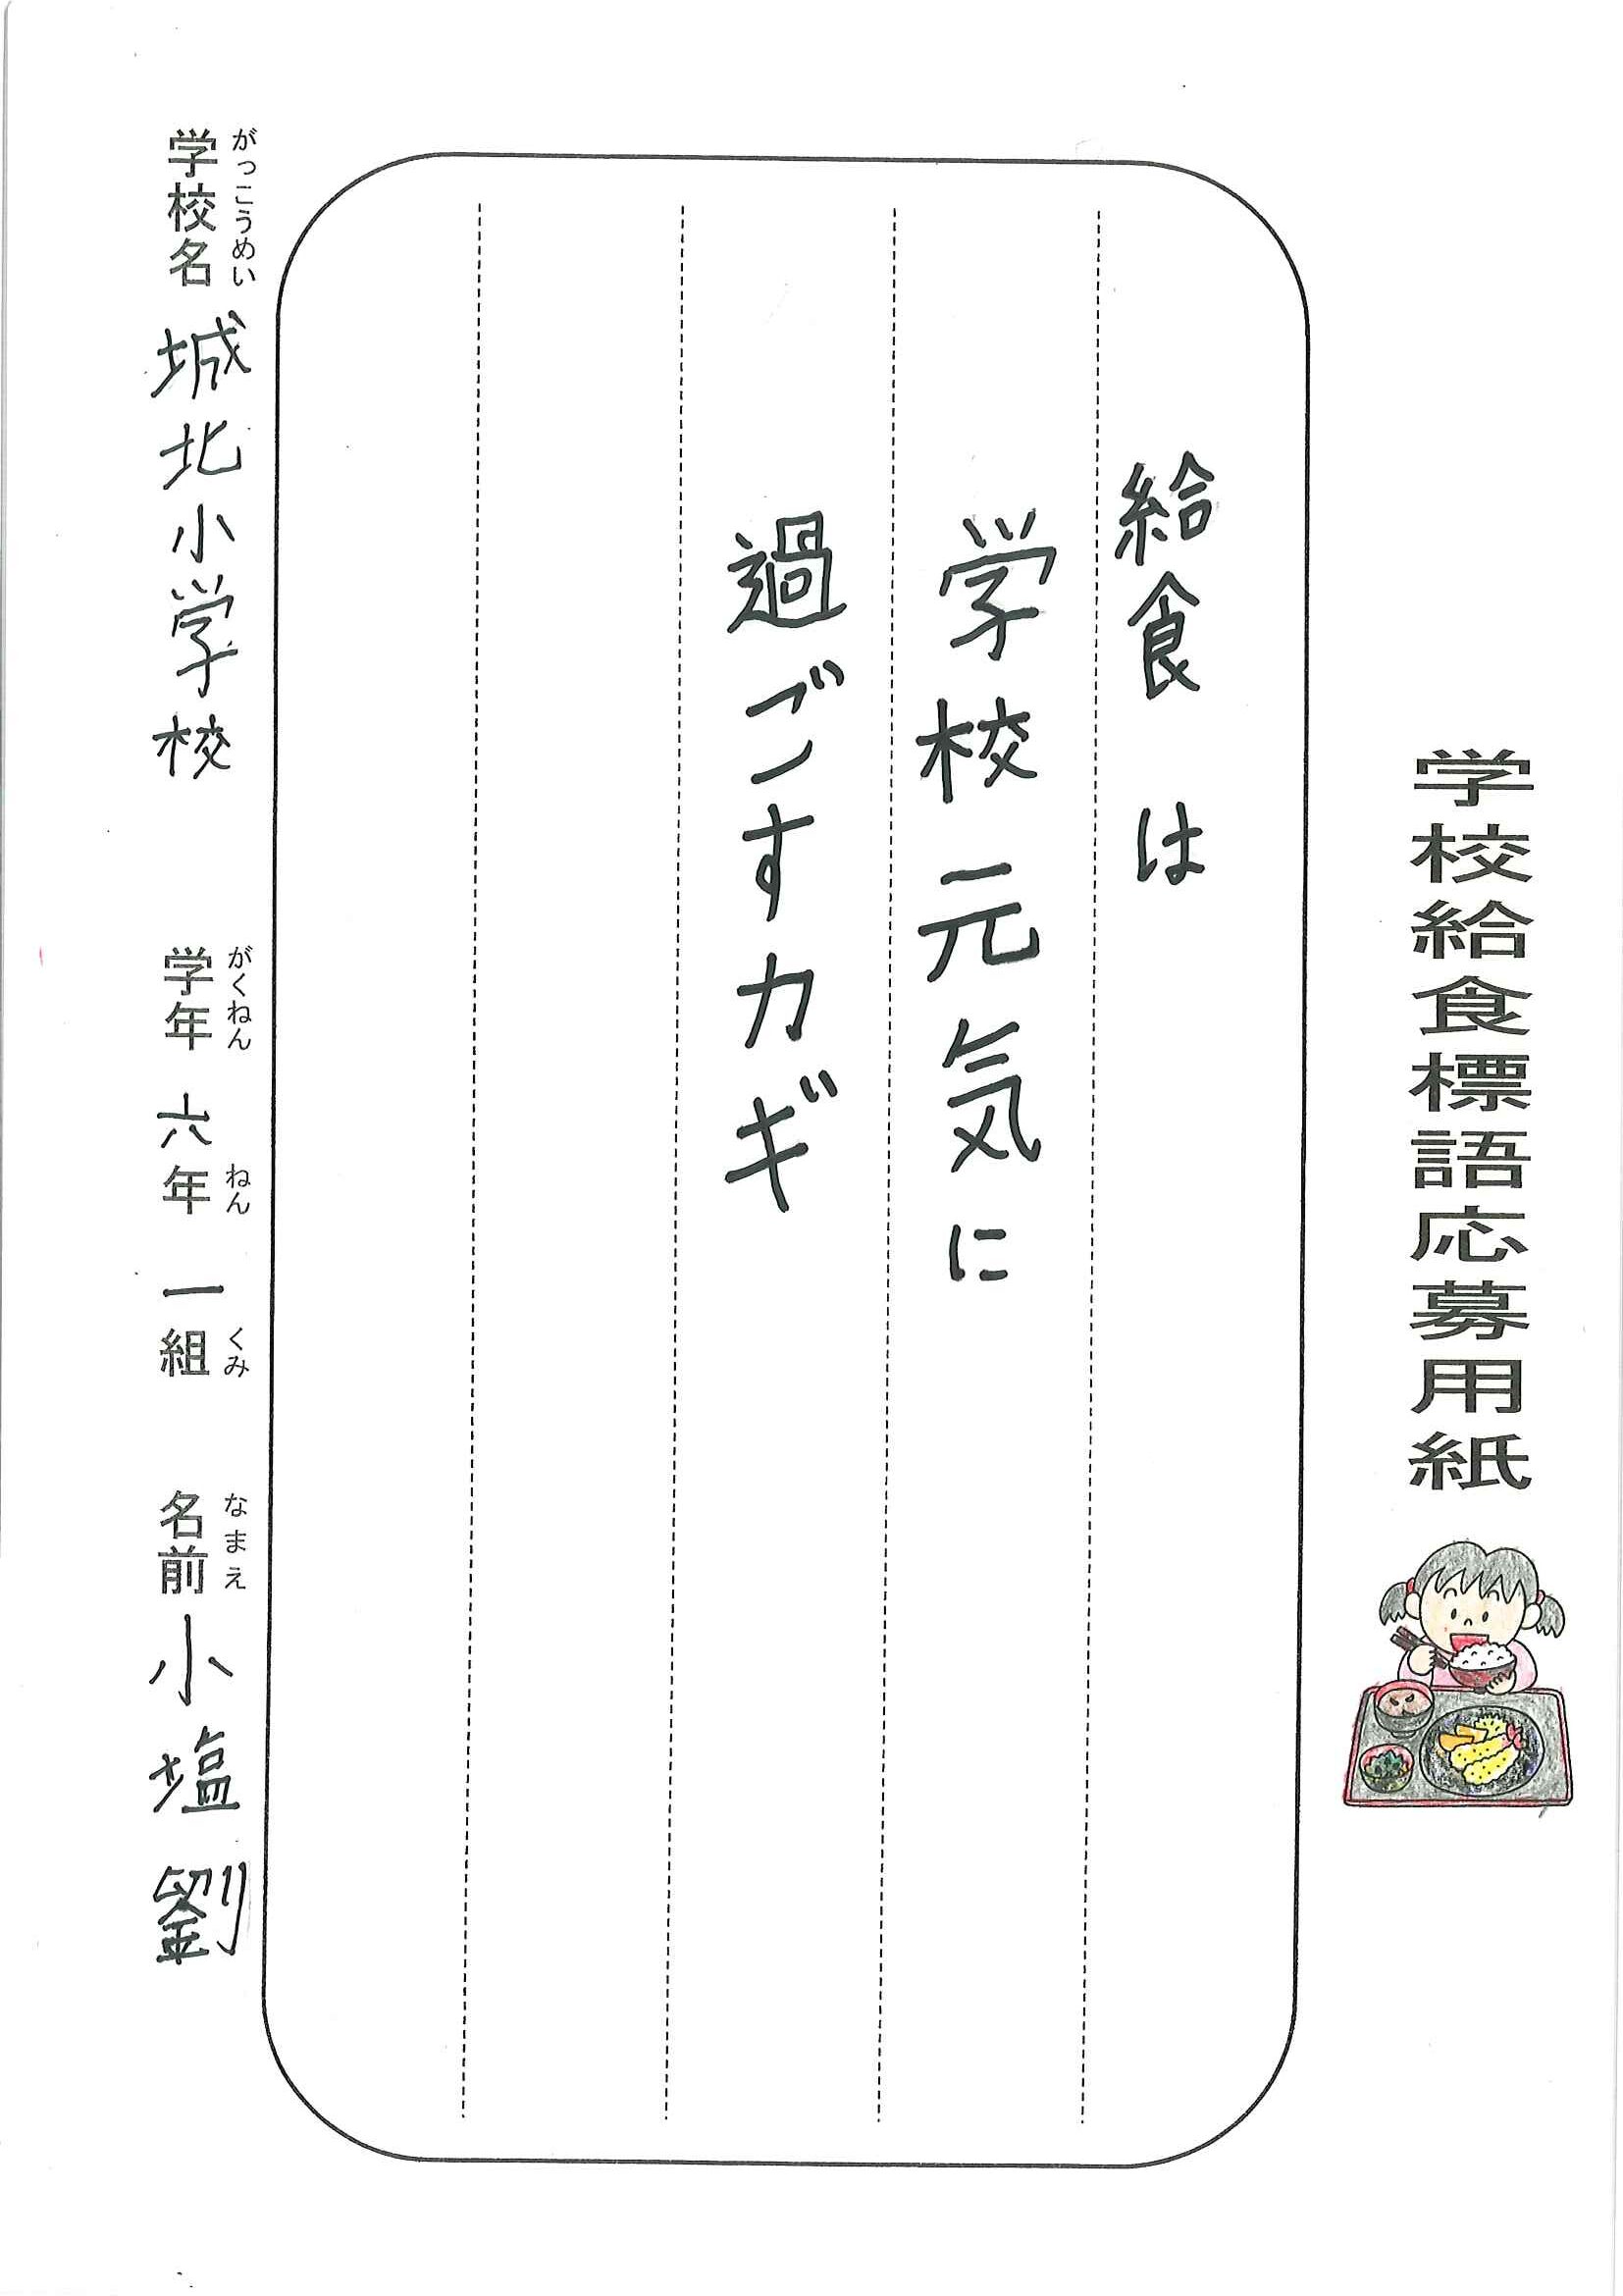 学校給食標語応募用紙
給食は
学校元気に
過ごすカギ
がっこうめい
学校名 城北小学校
がくねん ねん くみ
学年 六年 一組
なまえ
名前 小塩 劉